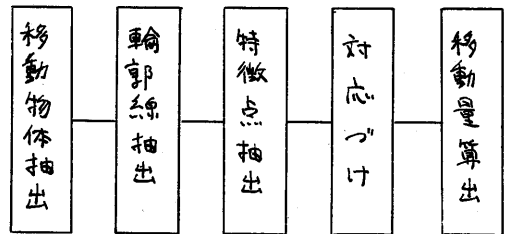 移動物体抽出
輪郭線抽出
特徴点抽出
対応づけ
移動量算出